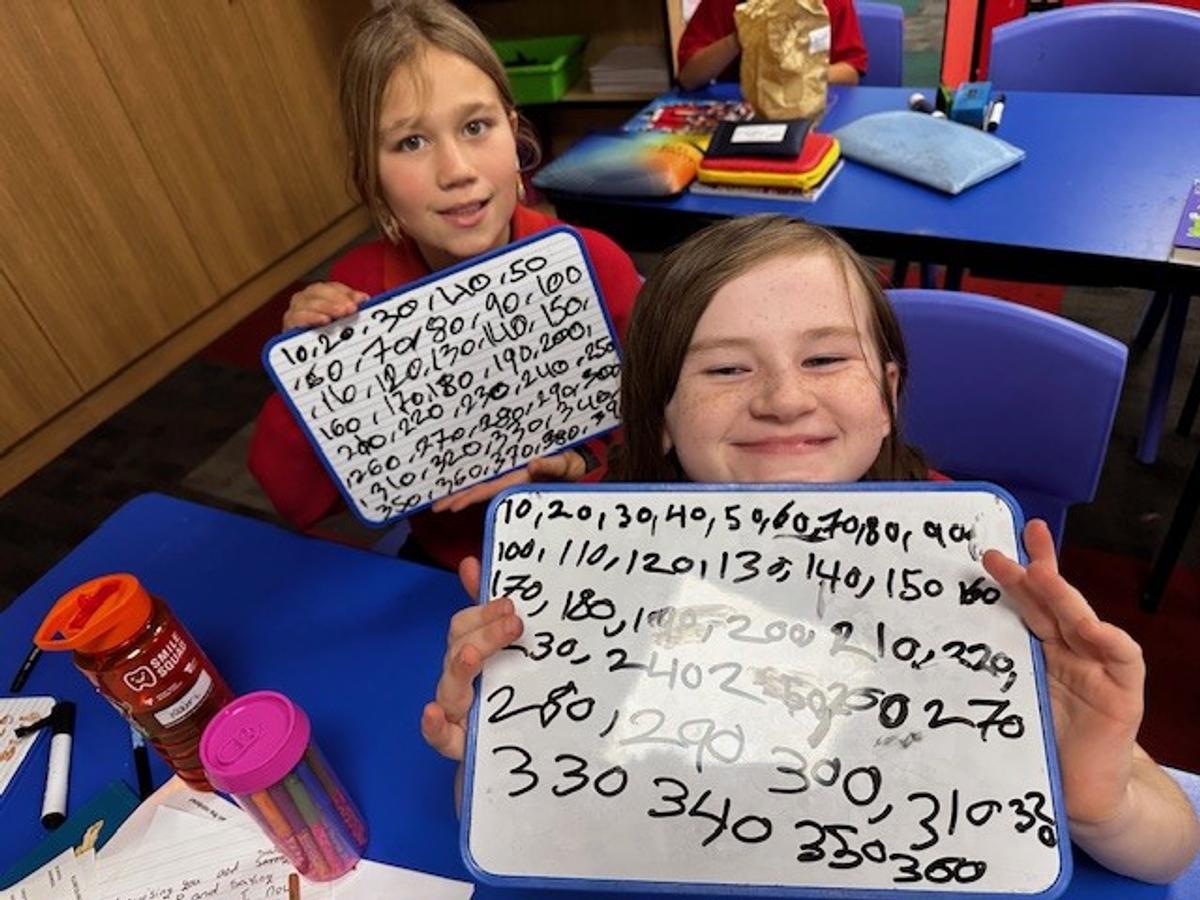 10, 20, 30, 40, 50
, 60, 70, 80, 90, 100
, 110, 120, 130, 140, 150,
160, 170, 180, 190, 200,
220, 230, 240, 250
, 260, 270, 280, 290, 300
, 310, 320, 330, 340,
350, 360, 370, 380,
10, 20, 30, 40, 50, 60, 70, 80, 90
100, 110, 120, 130, 140, 150 160
170, 180, 190, 200 210, 220,
230, 240 2
280, 290 300, 310 33
330 340 350 360
SMILE
SQUAD
and
and saying
I now